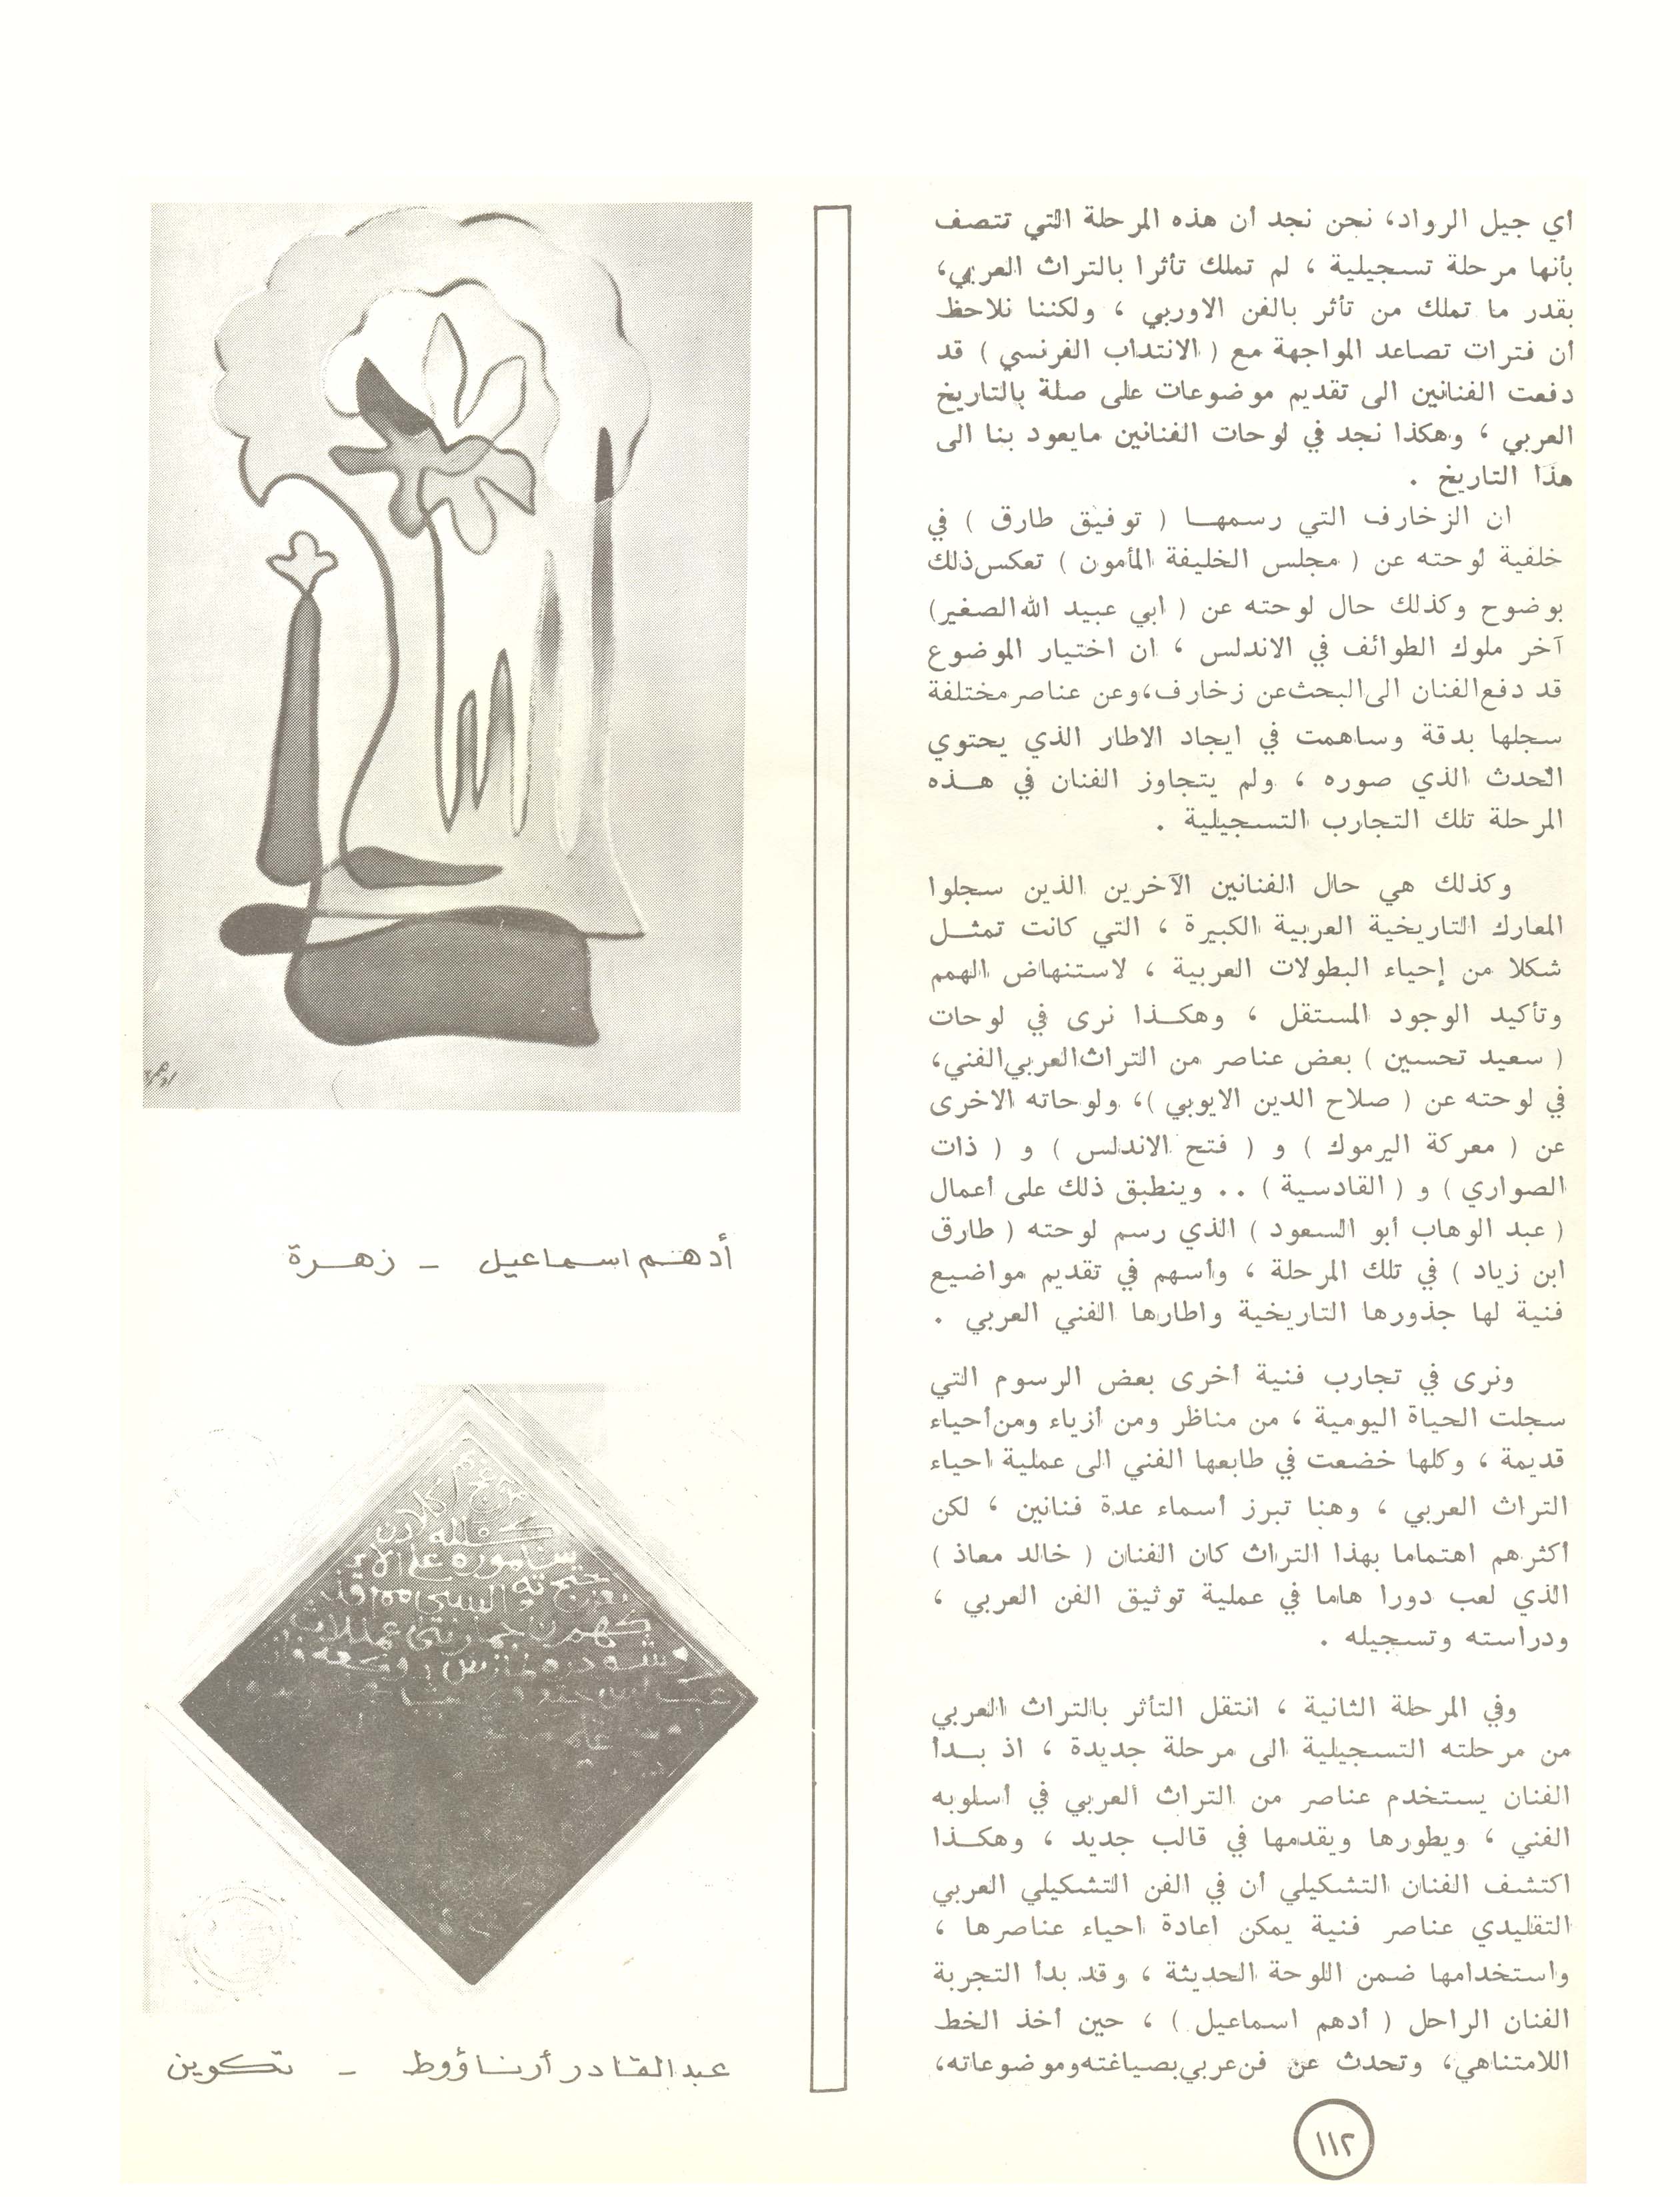 أي جيل الرواد، نحن نجد أن هذه المرحلة التي تتصف
بأنها مرحلة تسجيلية ، لم تملك تأثرا بالتراث العربي،
بقدر ما تملك من تأثر بالفن الاوربي ، ولكننا نلاحظ
أن فترات تصاعد المواجهة مع ( الانتداب الفرنسي ) قد
دفعت الفنانين الى تقديم موضوعات على صلة بالتاريخ
العربي ، وهكذا نجد في لوحات الفنانين مايعود بنا الى
هذا التاريخ .
ان الزخارف التي رسمها ( توفيق طارق ) في
خلفية لوحته عن ( مجلس الخليفة المأمون ) تعكس ذلك
بوضوح وكذلك حال لوحته عن ( ابي عبيد الله الصغير)
آخر ملوك الطوائف في الاندلس ، ان اختيار الموضوع
قد دفع الفنان الى البحث عن زخارف، وعن عناصر مختلفة
سجلها بدقة وساهمت في ايجاد الاطار الذي يحتوي
الحدث الذي صوره ، ولم يتجاوز الفنان في هذه
المرحلة تلك التجارب التسجيلية .
وكذلك هي حال الفنانين الآخرين الذين سجلوا
المعارك التاريخية العربية الكبيرة ، التي كانت تمثل
شكلا من إحياء البطولات العربية ، لاستنهاض الهمم
وتأكيد الوجود المستقل ، وهكذا نرى في لوحات
( سعيد تحسين ) بعض عناصر من التراث العربي الفني،
في لوحته عن ( صلاح الدين الايوبي )، ولوحاته الاخرى
عن ( معركة اليرموك ) و ( فتح الاندلس ) و ( ذات
الصواري ) و ( القادسية ) .. وينطبق ذلك على أعمال
( عبد الوهاب أبو السعود ) الذي رسم لوحته ( طارق
ابن زياد ) في تلك المرحلة ، وأسهم في تقديم مواضيع
فنية لها جذورها التاريخية واطارها الفني العربي .
ونرى في تجارب فنية أخرى بعض الرسوم التي
سجلت الحياة اليومية ، من مناظر ومن أزياء ومن أحياء
قديمة ، وكلها خضعت في طابعها الفني الى عملية احياء
التراث العربي ، وهنا تبرز أسماء عدة فنانين ، لكن
أكثرهم اهتماما بهذا التراث كان الفنان ( خالد معاذ )
الذي لعب دورا هاما في عملية توثيق الفن العربي ،
ودراسته وتسجيله .
وفي المرحلة الثانية ، انتقل التأثر بالتراث العربي
من مرحلته التسجيلية الى مرحلة جديدة ، اذ بدأ
الفنان يستخدم عناصر من التراث العربي في أسلوبه
الفني ، ويطورها ويقدمها في قالب جديد ، وهكذا
اكتشف الفنان التشكيلي أن في الفن التشكيلي العربي
التقليدي عناصر فنية يمكن اعادة احياء عناصرها ،
واستخدامها ضمن اللوحة الحديثة ، وقد بدأ التجربة
الفنان الراحل ( أدهم اسماعيل ) ، حين أخذ الخط
اللامتناهي، وتحدث عن فن عربي بصياغته وموضوعاته،
١١٢
أدهم اسماعيل - زهرة
عبد القادر أرناؤوط - تكوين